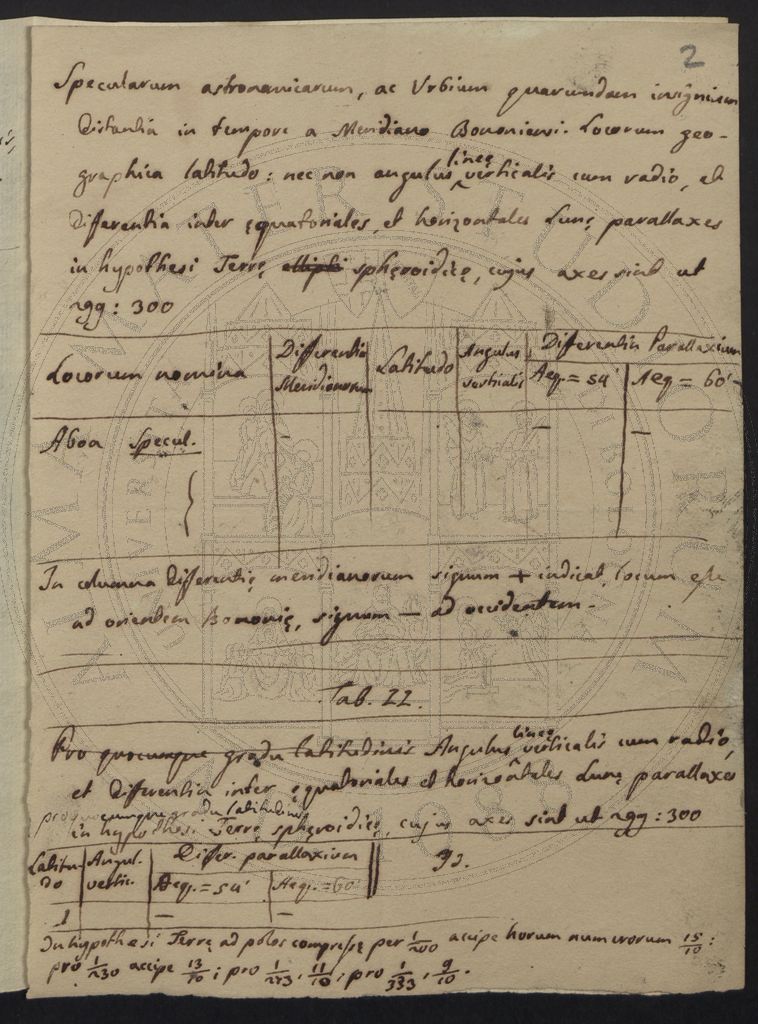 2
Specularum astronomicarum, ac Urbium quarundam insignium
Distantia in tempore a Meridiano Bononiensi. Locorum geo-
graphica latitudo: nec non angulus lineę verticalis cum radio, et
Differentia inter ęquatoriales, et horizontales Lunę parallaxes
in hypothesi Terrę sphęroidicę, cujus axes sint ut
299: 300
Locorum nomina | Differentia Meridianorum | Latitudo | Angulus verticalis | Differentia Parallaxium
Aeq. = 54' | Aeq = 60'
Aboa Specul. — — —
In columna Differentię meridianorum signum + indicat locum esse
ad orientem Bononię, signum — ad occidentem.
Tab. II.
Pro quocumque gradu latitudinis Angulus lineę verticalis cum radio,
et Differentia inter ęquatoriales et horizontales Lunę parallaxes
pro quocumque gradu latitudinis
in hypothesi Terrę sphęroidicę, cujus axes sint ut 299: 300
Latitudo | Angul. vertic. | Differ. parallaxium || 91.
Aeq. = 54' | Aeq. = 60'
1 — —
In hypothesi Terrę ad polos compressę per 1/200 accipe horum numerorum 15/10:
pro 1/230 accipe 13/10; pro 1/273, 11/10; pro 1/333, 9/10.